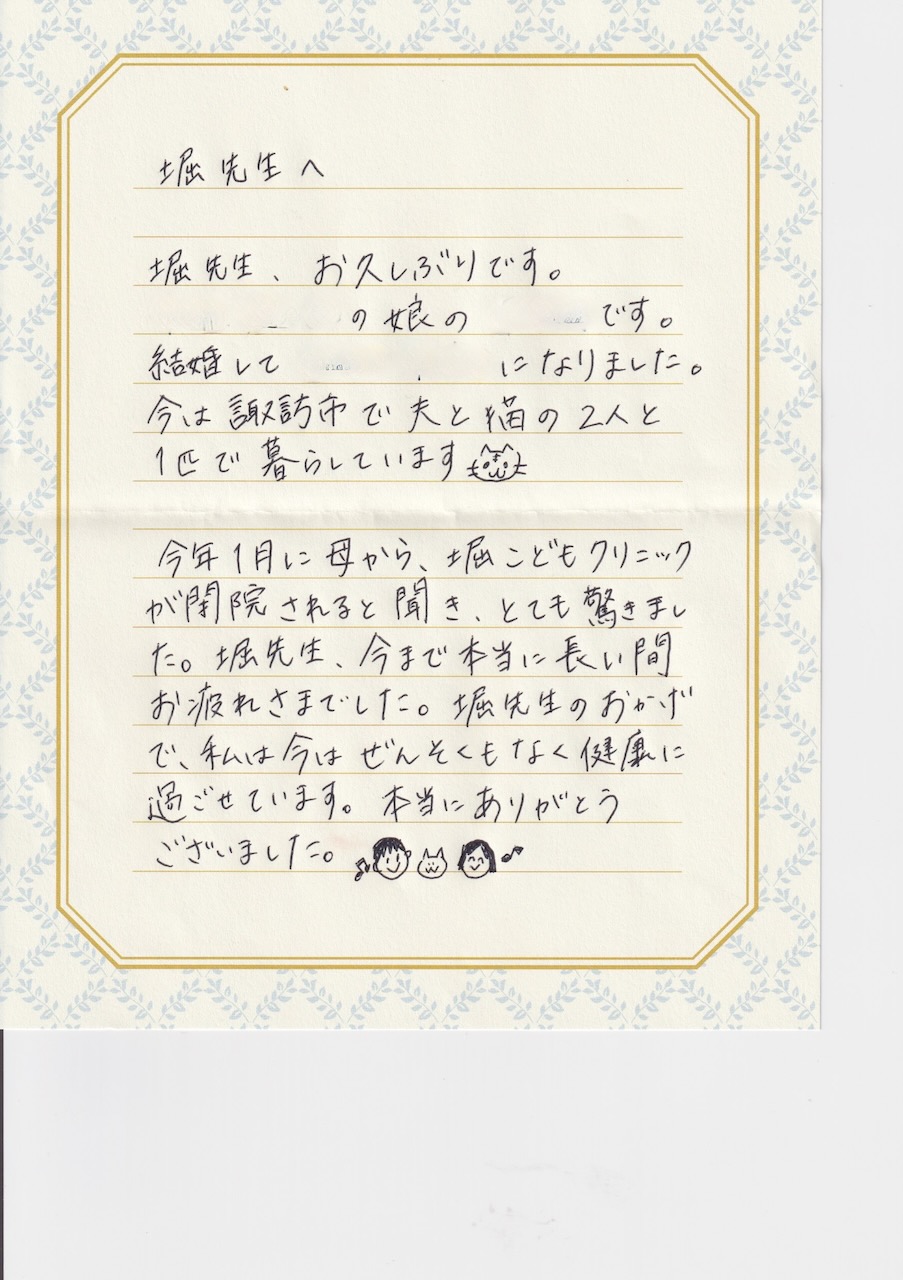 堀先生へ
堀先生、お久しぶりです。
の娘の です。
結婚して になりました。
今は諏訪市で夫と猫の2人と
1匹で暮らしています
今年1月に母から、堀こどもクリニック
が閉院されると聞き、とても驚きまし
た。堀先生、今まで本当に長い間
お疲れさまでした。堀先生のおかげ
で、私は今はぜんそくもなく健康に
過ごせています。本当にありがとう
ございました。